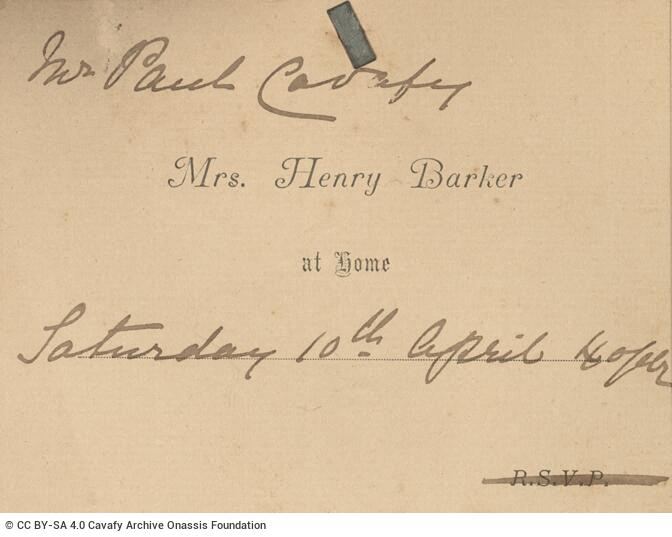 Mr Paul Cavafy
Mrs. Henry Barker
at Home
Saturday 10th April
R.S.V.P.
© CC BY-SA 4.0 Cavafy Archive Onassis Foundation